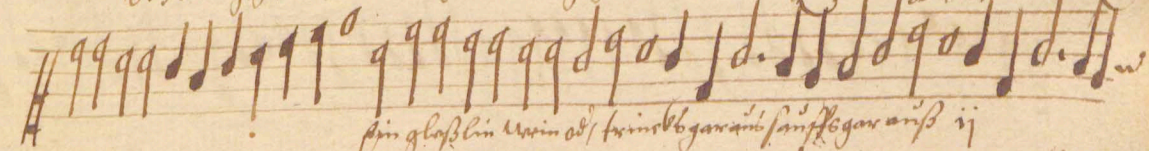 ein gleßlin wein od / trincks gar aus sauffs gar auß ij